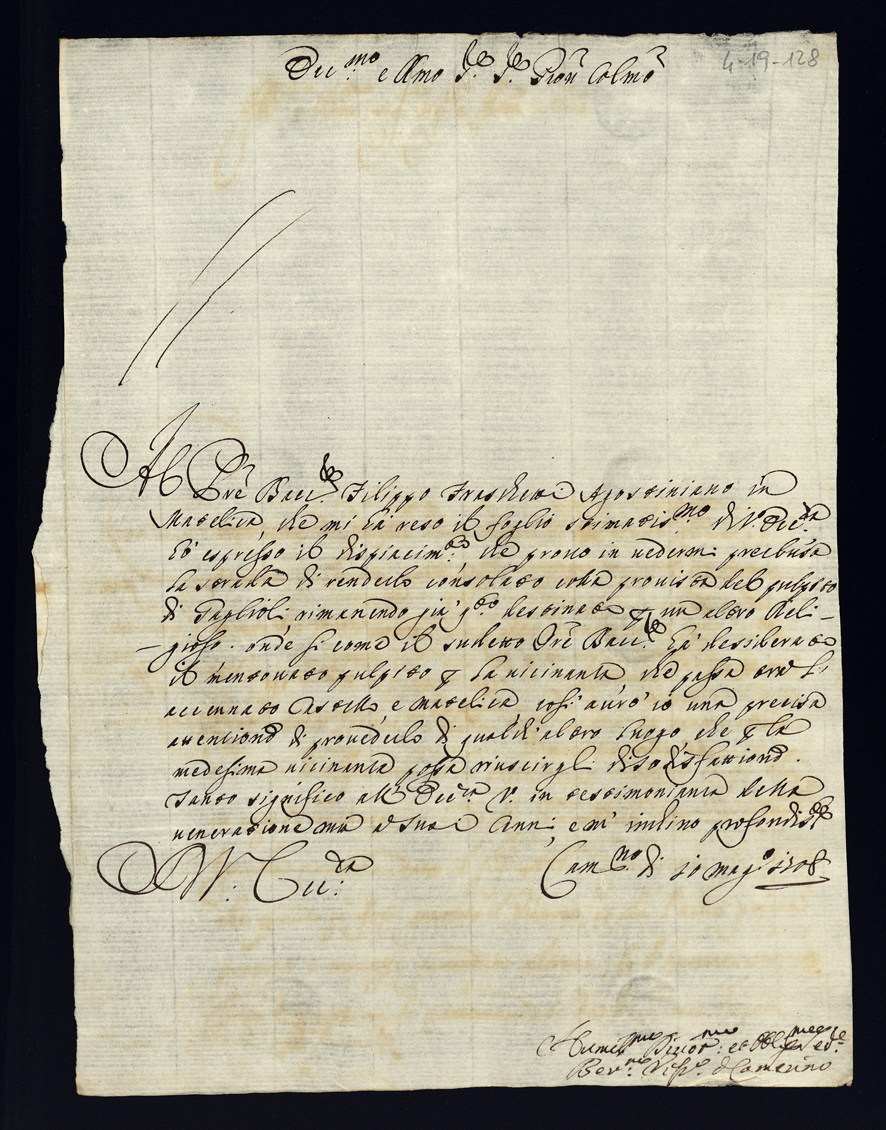 4-19-128
Ecc.mo e Rmo Sig.re Sig.re Pron Colmo
Al Pre Bacc.re Filippo Fraschetti Agostiniano in
Matelica, che mi hà reso il foglio stimatis.mo di V. Ecc.za
hò espresso il dispiacim.to che provo in vedermi preclusa
la strada di renderlo consolato colla provista del pulpito
di Taglioli rimanendo già q.to destinato p un altro Reli-
-gioso. onde si come il sudetto Pre Bacc.re hà desiderato
il mentovato pulpito p la vicinanza che passa trà l'
accennato Castello e Matelica così avrò io una precisa
attentione di provederlo di qualch'altro luogo che p la
medesima vicinanza possa riuscirgli di sodisfattione.
Tanto significo all' Ecc.za V. in testimonianza della
veneratione mia a suoi Cenni e m' inclino profondis.te
V. Ecc.za
Cam.no di 10 Mag.o 1708
Humil.mo Divot.mo et Obblig.mo Ser.re
Ber.no Vesc.o di Camerino